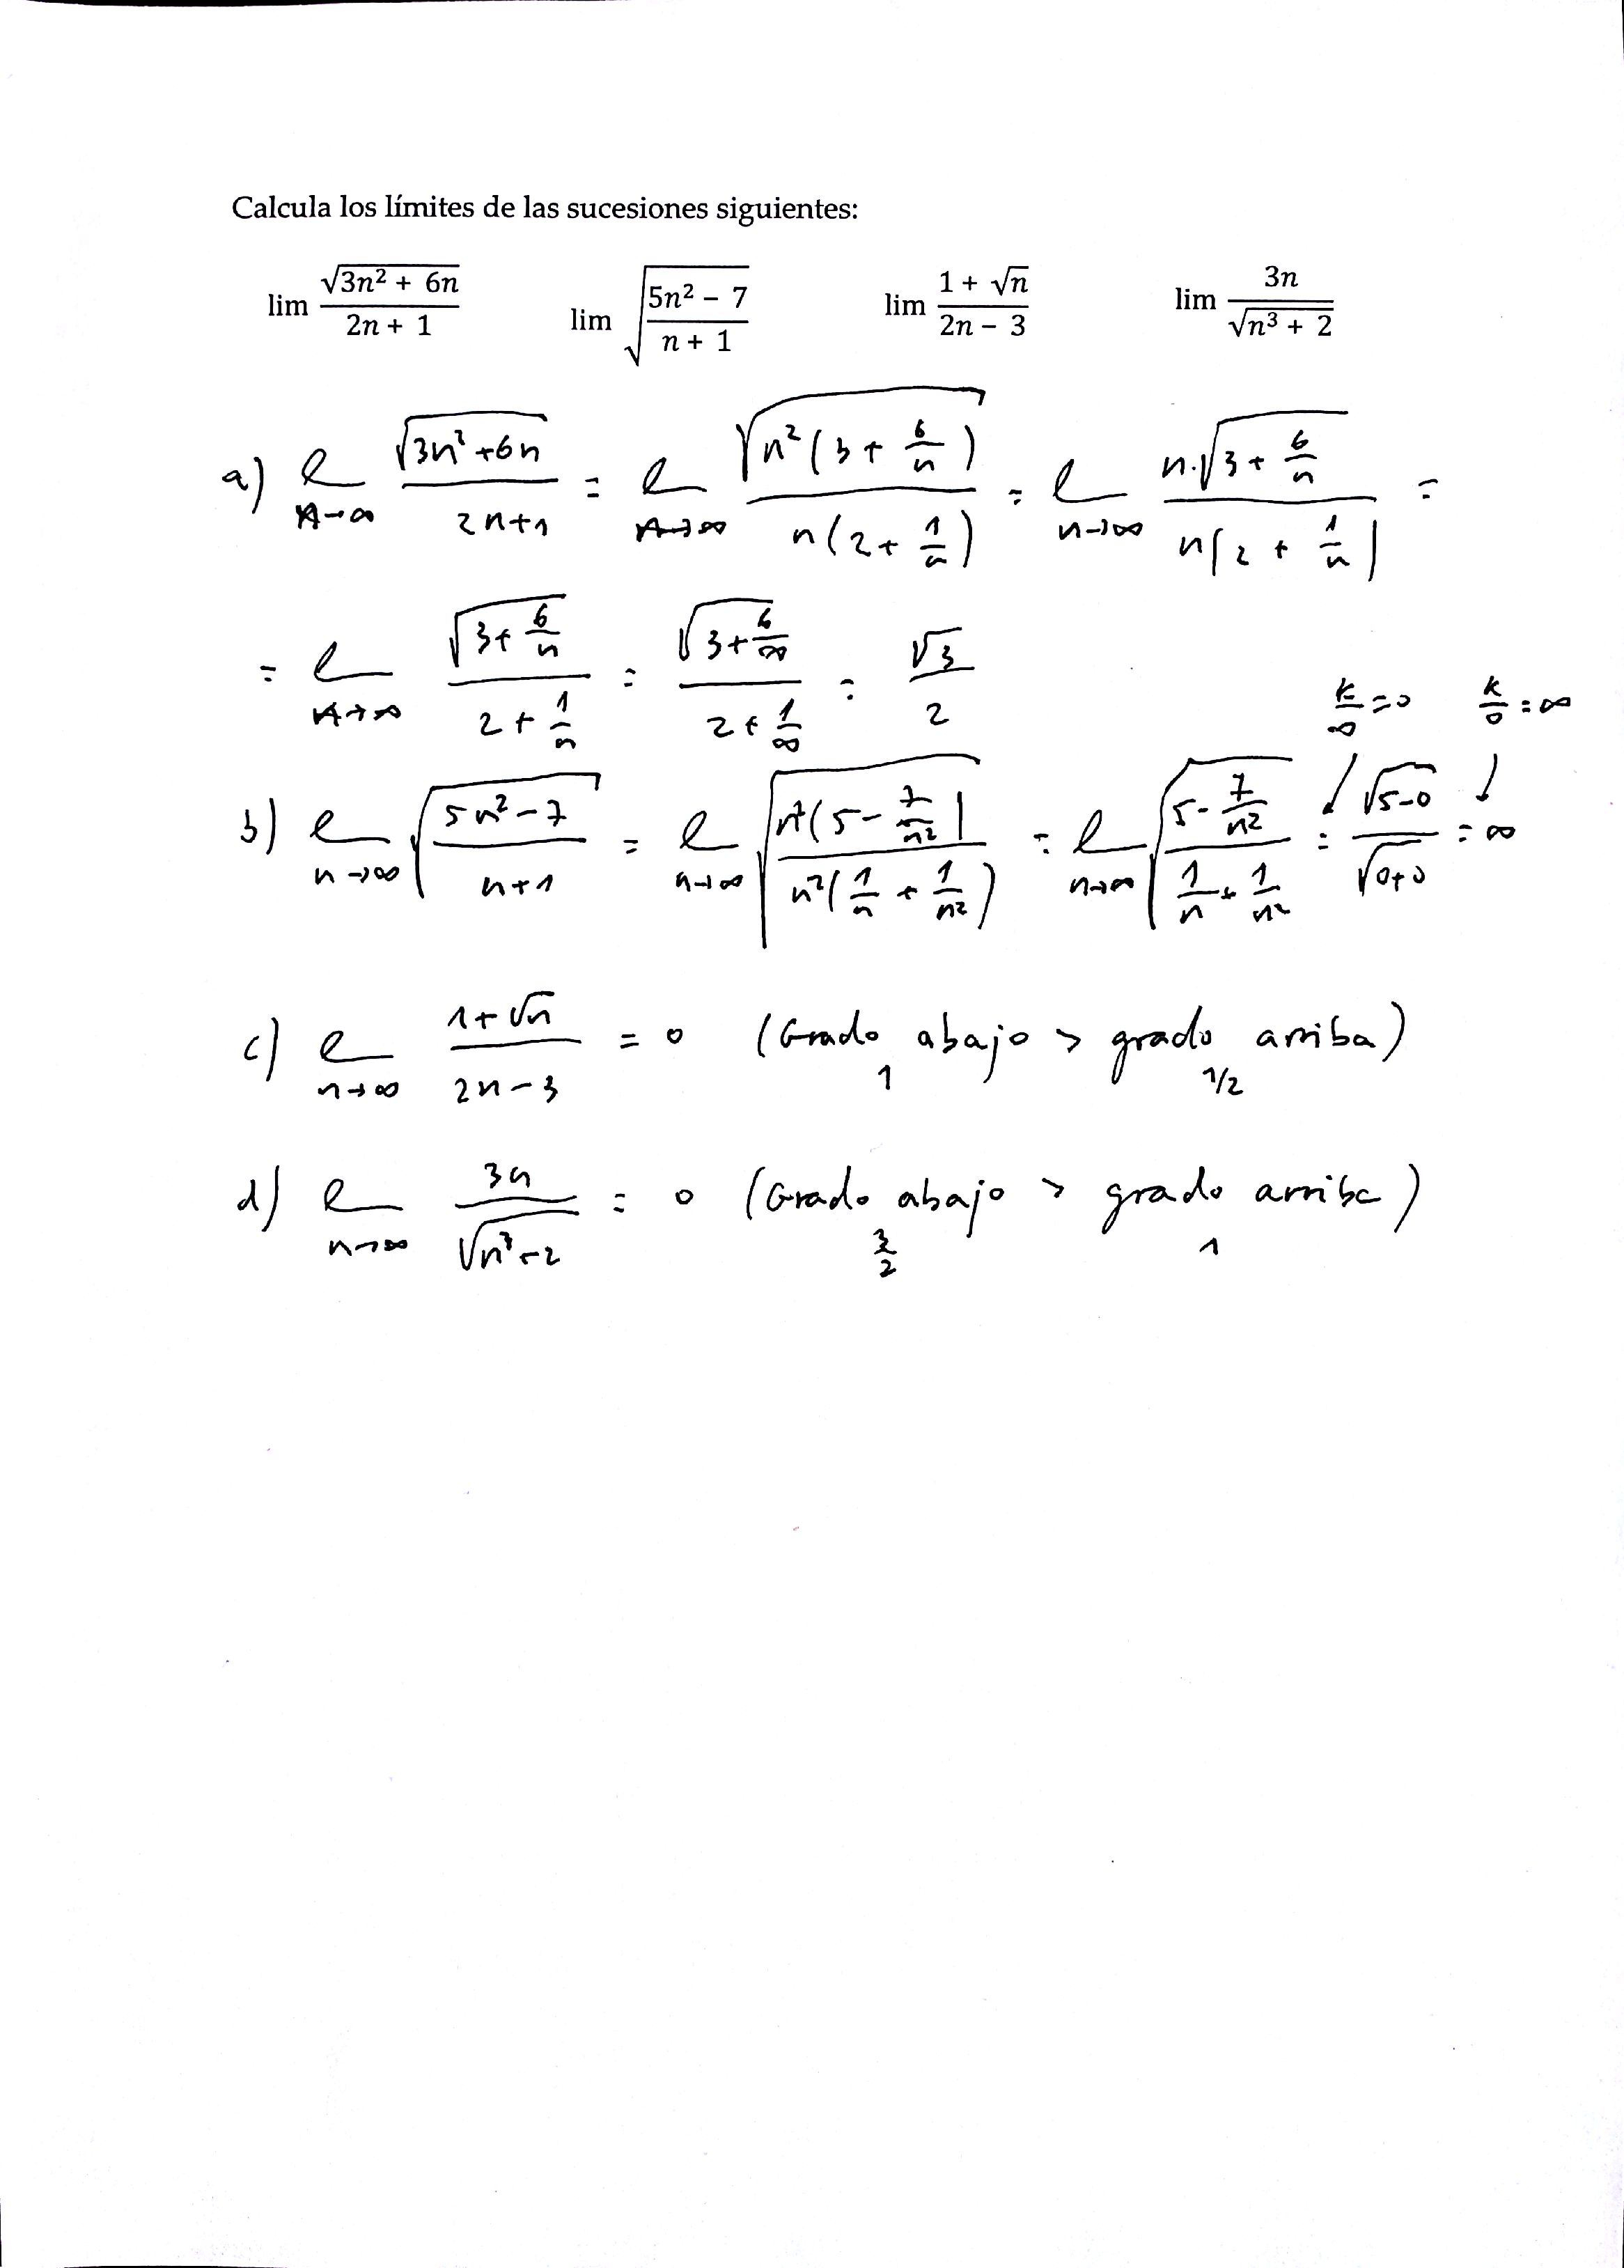 Calcula los límites de las sucesiones siguientes:
lim √(3n² + 6n) / (2n + 1)    lim √((5n² − 7) / (n + 1))    lim (1 + √n) / (2n − 3)    lim 3n / √(n³ + 2)
a) l_{n→∞} √(3n²+6n) / (2n+1) = l_{n→∞} √(n²(3 + 6/n)) / (n(2 + 1/n)) = l_{n→∞} n·√(3 + 6/n) / (n(2 + 1/n)) =
= l_{n→∞} √(3 + 6/n) / (2 + 1/n) = √(3 + 6/∞) / (2 + 1/∞) = √3 / 2
k/∞ = 0    k/0 = ∞
b) l_{n→∞} √((5n² − 7) / (n+1)) = l_{n→∞} √(n²(5 − 7/n²) / (n²(1/n + 1/n²))) = l_{n→∞} √((5 − 7/n²) / (1/n + 1/n²)) = √(5−0) / √(0+0) = ∞
c) l_{n→∞} (1 + √n) / (2n − 3) = 0 (Grado abajo > grado arriba)
1    1/2
d) l_{n→∞} 3n / √(n³+2) = 0 (Grado abajo > grado arriba)
3/2    1